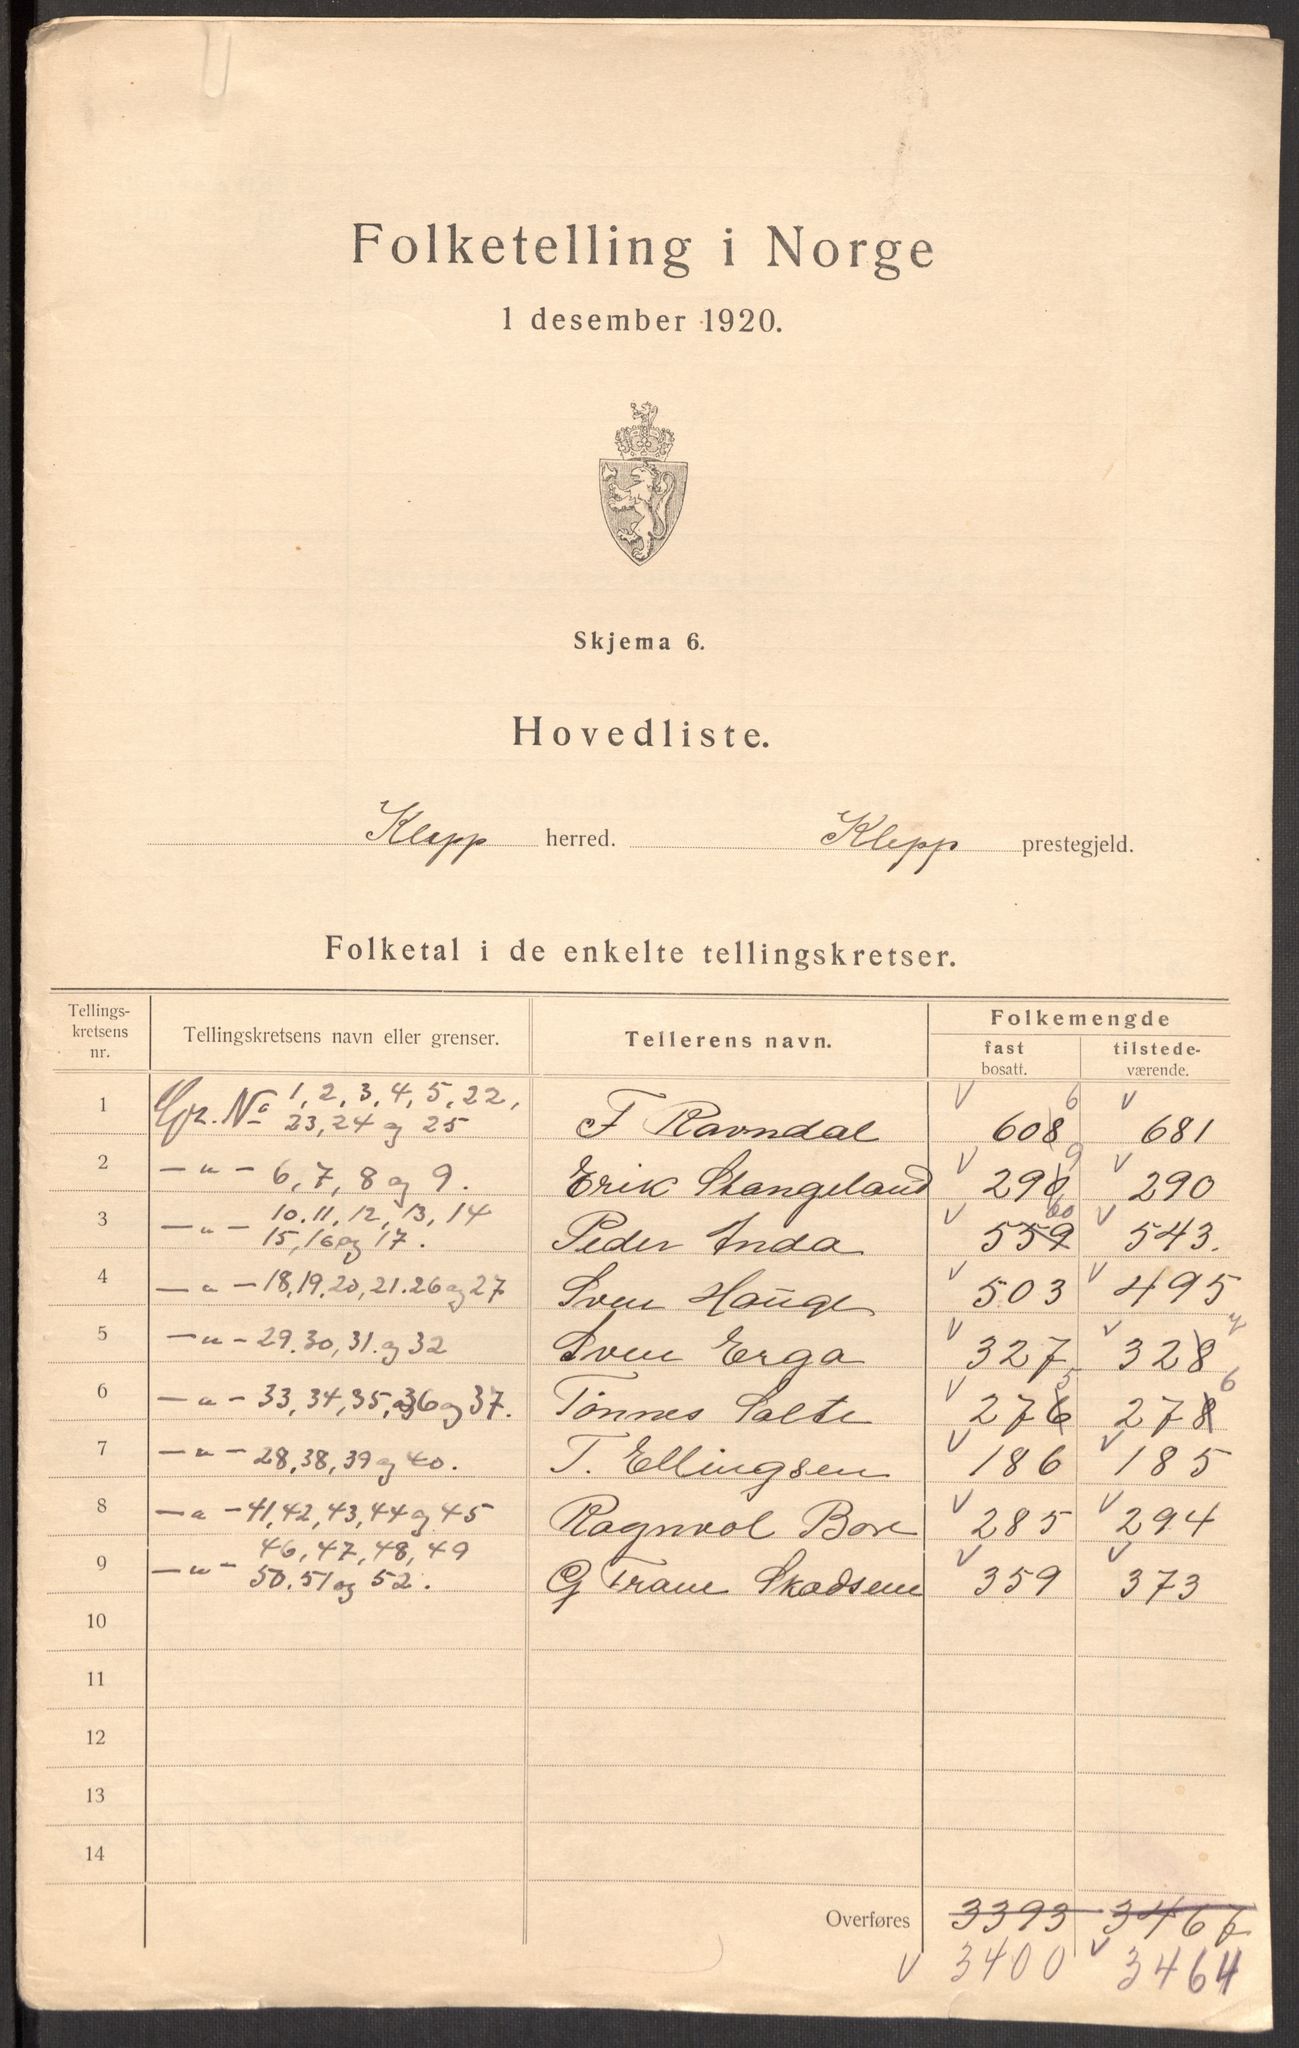 Folketelling i Norge
1 desember 1920.
Skjema 6.
Hovedliste.
Klepp herred. Klepp prestegjeld.
Folketal i de enkelte tellingskretser.
Tellings-
kretsens
nr.
Tellingskretsens navn eller grenser.
Tellerens navn.
Folkemengde
fast
bosatt.
tilstede-
værende.
1 Gr. No 1, 2, 3, 4, 5, 22,
23, 24 og 25 F Ravndal 608 6 681
2 — " — 6, 7, 8 og 9. Erik Stangeland 298 9 290
3 — " — 10. 11, 12, 13, 14
15, 16 og 17. Peder Anda 559 60 543.
4 — " — 18, 19, 20, 21. 26 og 27 Sven Hauge 503 495
5 — " — 29. 30, 31. og 32 Sven Erga 327 328
6 — " — 33, 34, 35, 36 og 37. Tønnes Salte 276 5 278 6
7 — " — 28, 38, 39 og 40. T. Ellingsen 186 185
8 — " — 41, 42, 43, 44 og 45 Ragnvol Bore 285 294
9 — " — 46, 47, 48, 49
50. 51 og 52. G Trane Skadsem 359 373
10
11
12
13
14
Overføres 3393 3467
3400 3464